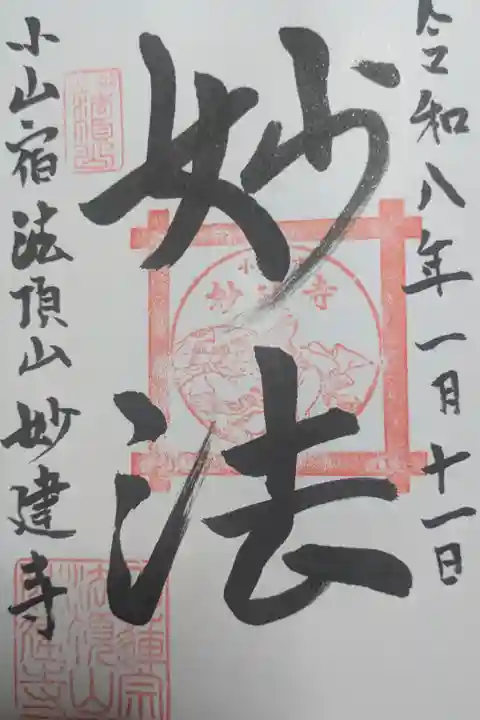 令和八年一月十一日
妙法
小山宿法頂山妙建寺
法頂山
妙法寺
日蓮宗
法頂山
妙建寺